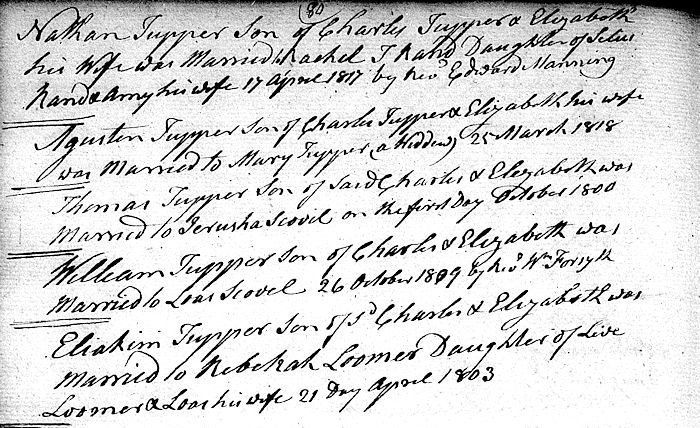 80
Nathan Tupper Son of Charles Tupper & Elizabeth
his Wife was Married Rachel T Rand Daughter of Silus
Rand & Amy his wife 17 April 1817 by Revd Edward Manning
Agusten Tupper Son of Charles Tupper & Elizabeth his wife
was Married to Mary Tupper (a Widdew) 25 March 1818
Thomas Tupper Son of Said Charles & Elizabeth was
Married to Jerusha Scovil on the first Day October 1800
William Tupper Son of Charles & Elizabeth was
Married to Loas Scovel 26 October 1809 by Revd Wm Forsyth
Eliakim Tupper Son of sd Charles & Elizabeth was
Married to Rebekah Loomer Daughter of Live
Loomer & Loas his wife 21 Day April 1803